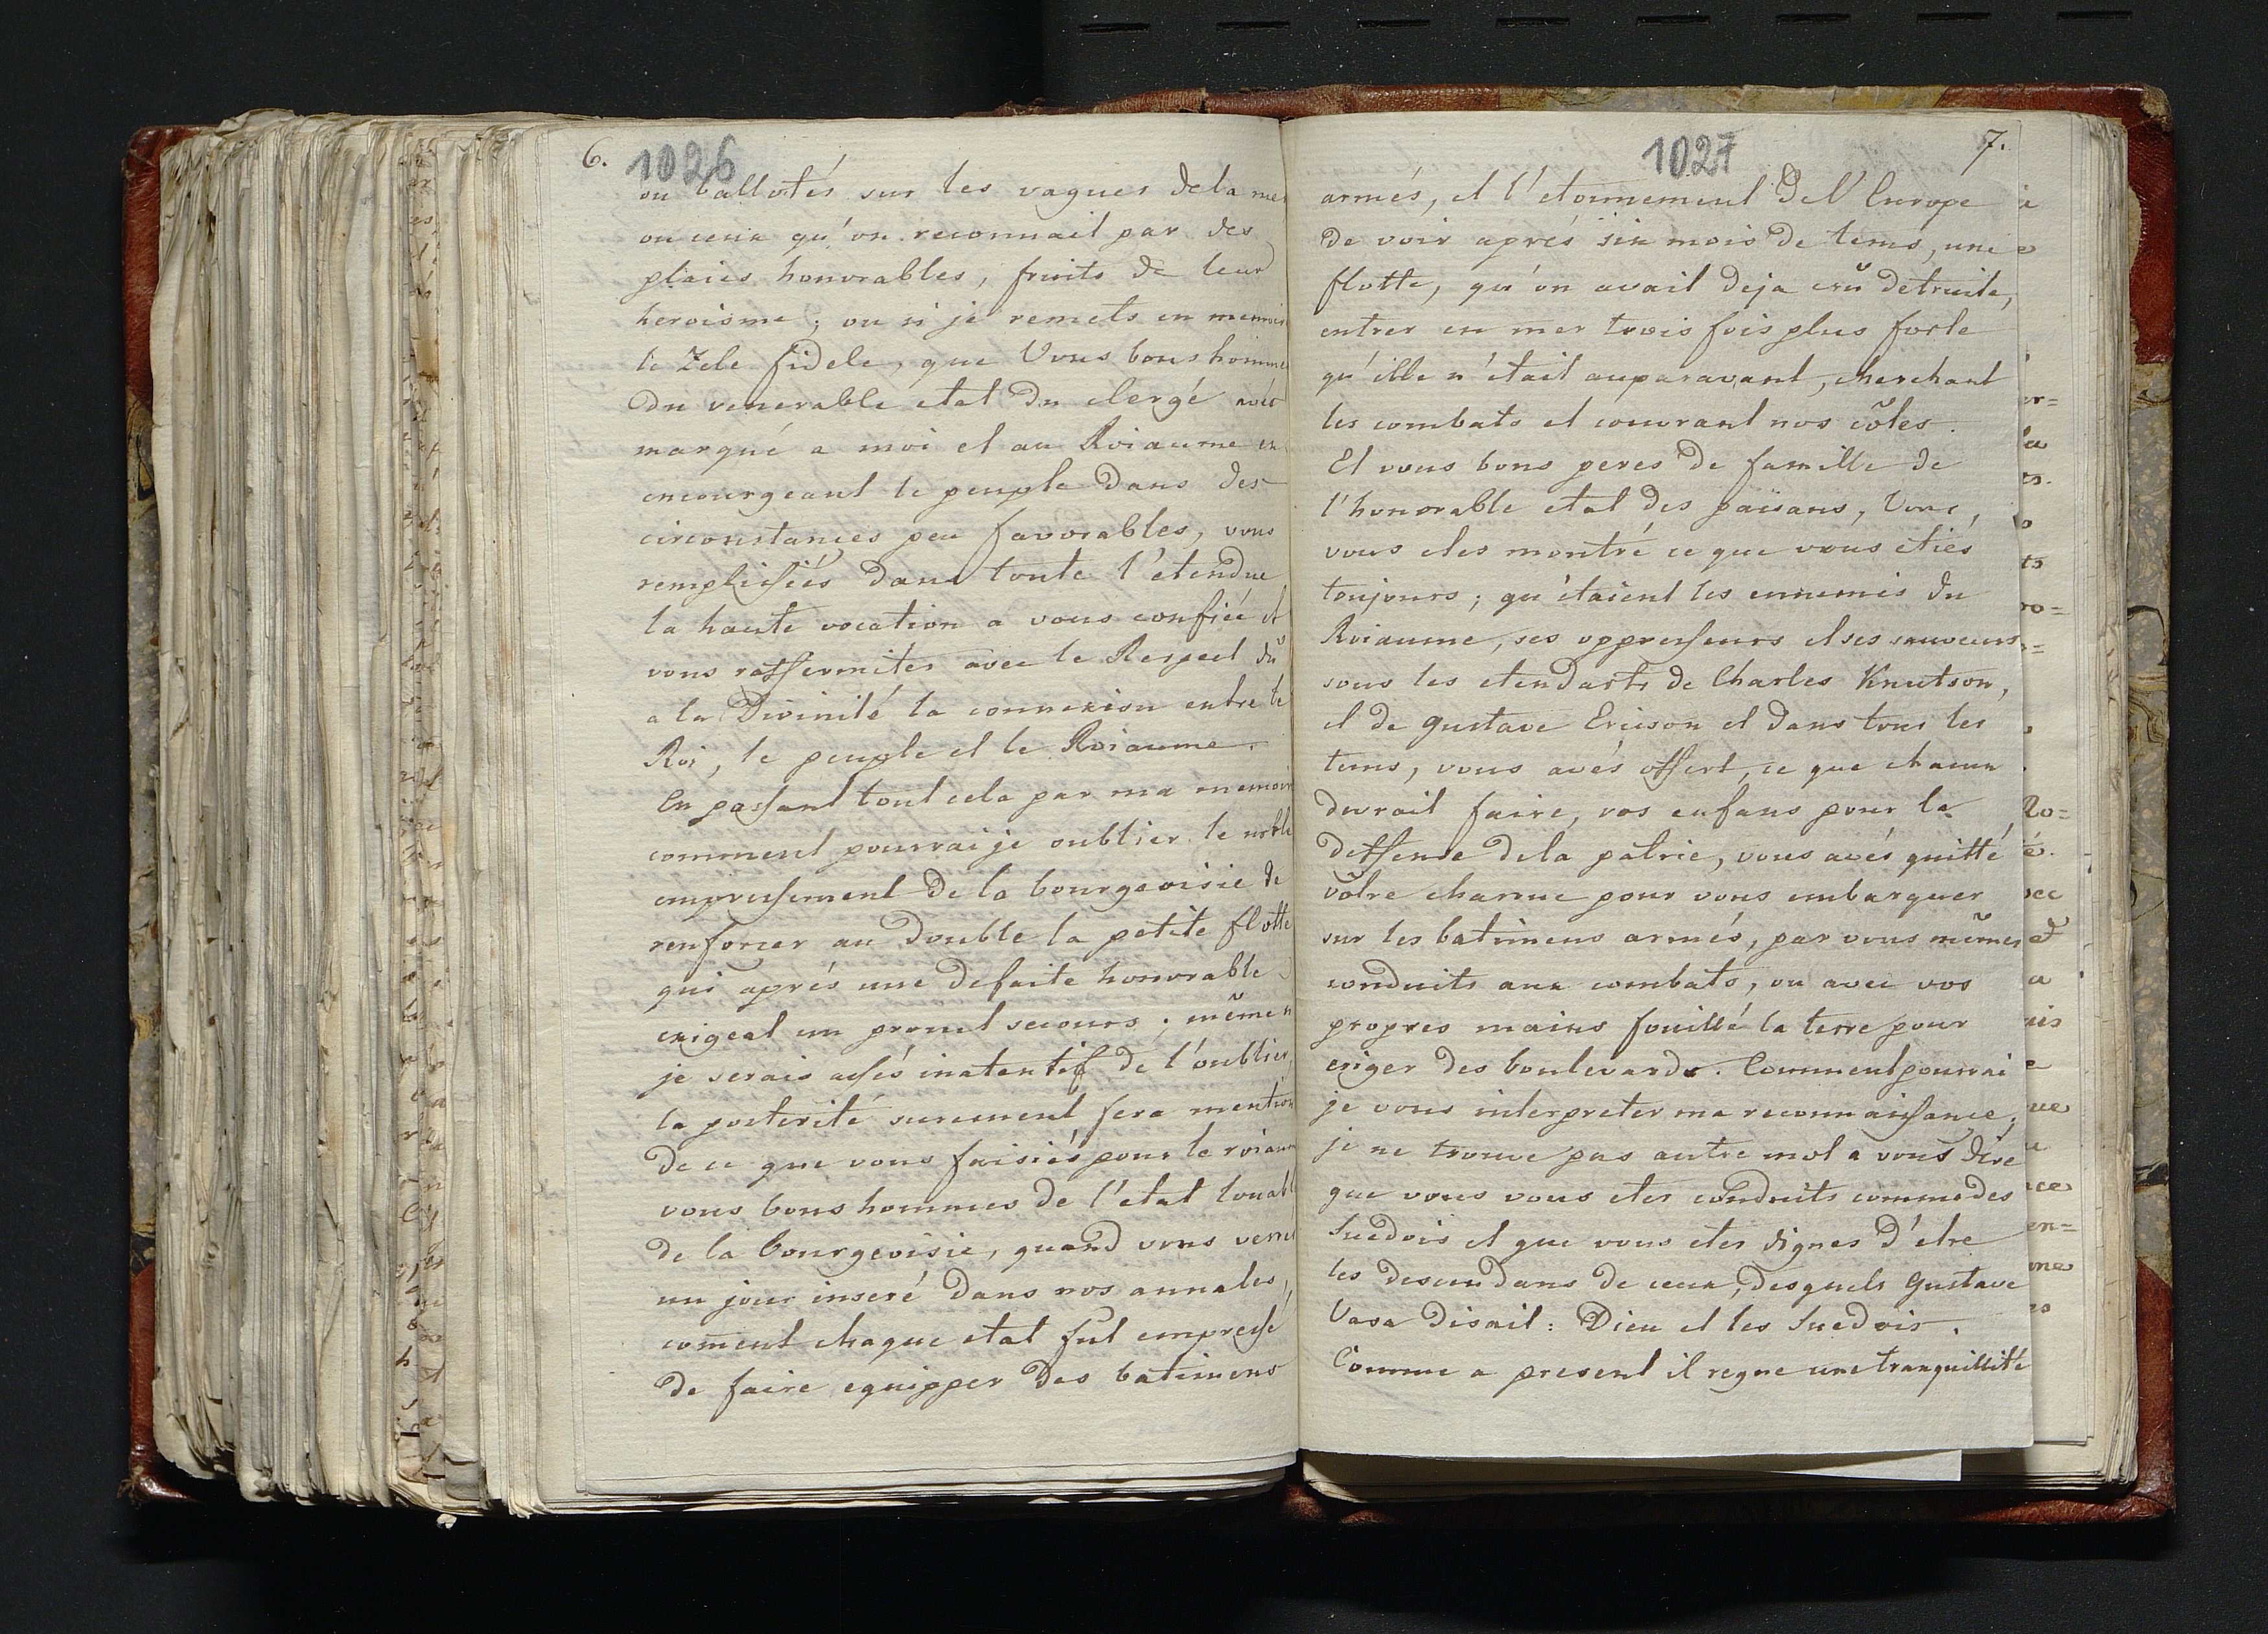 6.
1026
ou ballotés sur les vagues dela mer
ou ceux qu'on reconnait par des
plaies honorables, fruits de leur
heroisme; ou si je remets en memoire
le Zele fidele, que Vous bons hommes
du venerable etat du clergé avés
marqué a moi et au Roiaume en
encourgeant le peuple dans des
circonstances peu favorables, vous
remplissiés dans toute l'etendue
la haute vocation a vous confiée et
vous raffermites avec le Respect dû
a la Divinité la connexion entre le
Roi, le peuple et le Roiaume.
En passant tout cela par ma memoire
comment pourrai je oublier le noble
empressement de la bourgeoisie de
renforcer au double la petite flotte
qui aprés une defaite honorable
exigeat un promt secours; même
je serais assés inatentif de l'oublier,
la posterité surement fera mention
de ce que vous faisiés pour le roiaum
vous bons hommes de l'etat louabl
de la bourgeoisie, quand vous verrés
un jour inseré dans nos annales,
coment chaque etat fut empressé
de faire equipper des batimens
1027
7.
armés, et l'etonnement de l'Europe
de voir aprés six mois de tems, une
flotte, qu'on avait deja crû detruite,
entrer en mer trois fois plus forte
qu'ille n'était auparavant, cherchant
les combats et couvrant nos côtes.
Et vous bons peres de famille de
l'honorable etat des païsans, Vous,
vous etes montré ce que vous étiés
toujours; qu'étaient les ennemis du
Roiaume, ses oppresseurs et ses sauveurs
sous les etendarts de Charles Knutson,
et de Gustave Ericson et dans tous les
tems, vous avés offert, ce que chacun
devrait faire, vos enfans pour la
deffense dela patrie, vous avés quitté
vôtre charrue pour vous embarquer
sur les batimens armés, par vous mêmes
conduits aux combats, ou avec vos
propres mains fouillé la terre pour
eriger des boulevards. Comment pourrai
je vous interpreter ma reconnaissance,
je ne trouve pas autre mot a vous dire
que vous vous etes conduits comme des
Suedois et que vous etes dignes d'etre
les descendans de ceux, desquels Gustave
Vasa disait: Dieu et les Suedois.
Comme a present il regne une tranquillité